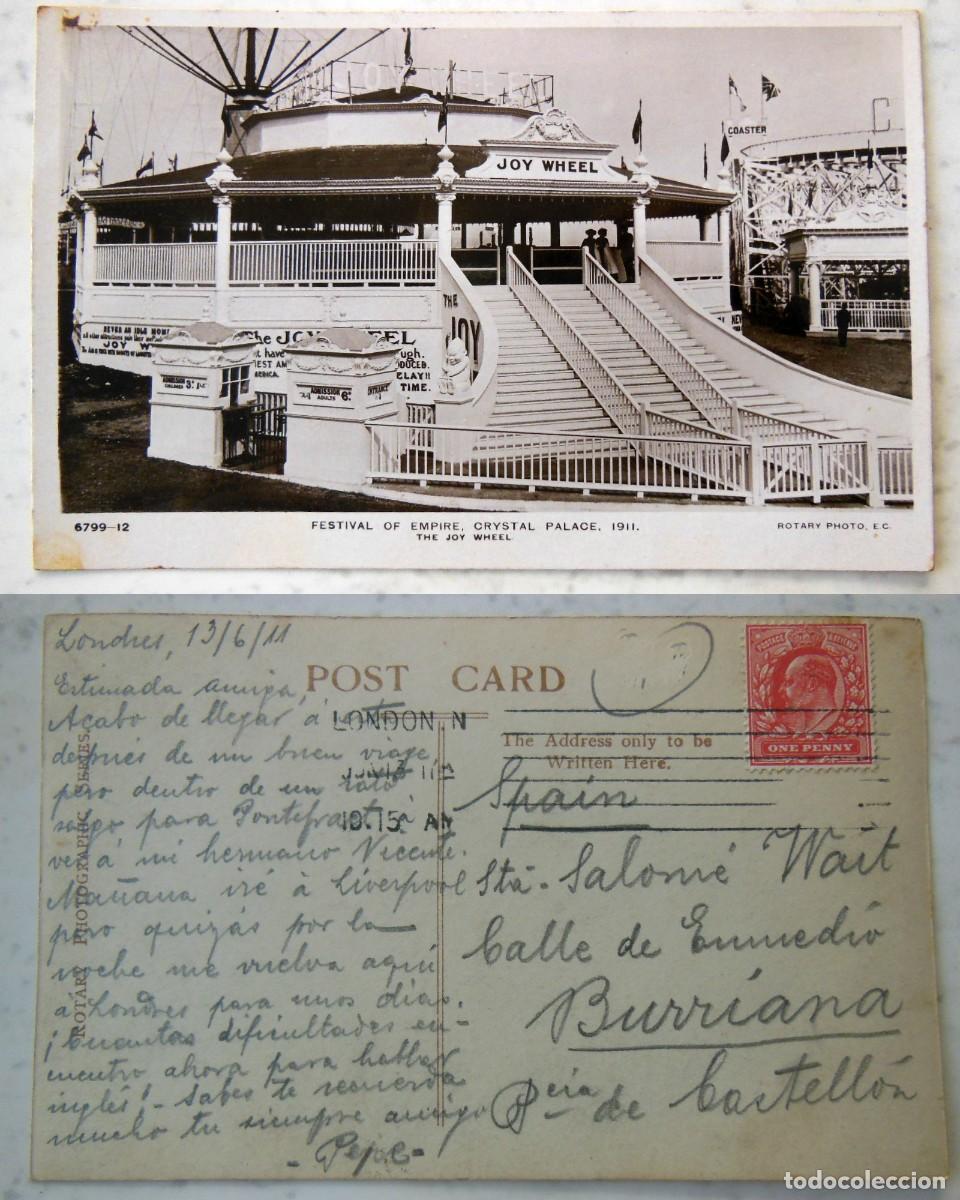 JOY WHEEL
JOY WHEEL
COASTER
NEVER AN IDLE
JOY W
The JOY WHEEL
THE
JOY
t have
ugh.
EST AM
DUCED.
ERICA.
ELAY!!
TIME.
ADMISSION
CHILDREN 3D
ADMISSION
ADULTS 6D
ENTRANCE
6799-12
FESTIVAL OF EMPIRE, CRYSTAL PALACE, 1911.
THE JOY WHEEL
ROTARY PHOTO, E.C.
Londres, 13/6/11
Estimada amiga,
Acabo de llegar á esta
después de un buen viage
pero dentro de un rato
salgo para Pontefract á
ver á mi hermano Vicente.
Mañana iré á Liverpool
pero quizás por la
noche me vuelva aquí
á Londres para unos dias.
¡Cuantas dificultades en-
cuentro ahora para hablar
inglés! - Sabes te recuerda
mucho tu siempre amigo
- Pepe -
POST CARD
The Address only to be
Written Here.
LONDON N
10.15 AM
POSTAGE & REVENUE
ONE PENNY
Spain
Sta. Salomé Wait
Calle de Enmedio
Burriana
Pcia de Castellón
ROTARY PHOTOGRAPHIC SERIES.
todocoleccion